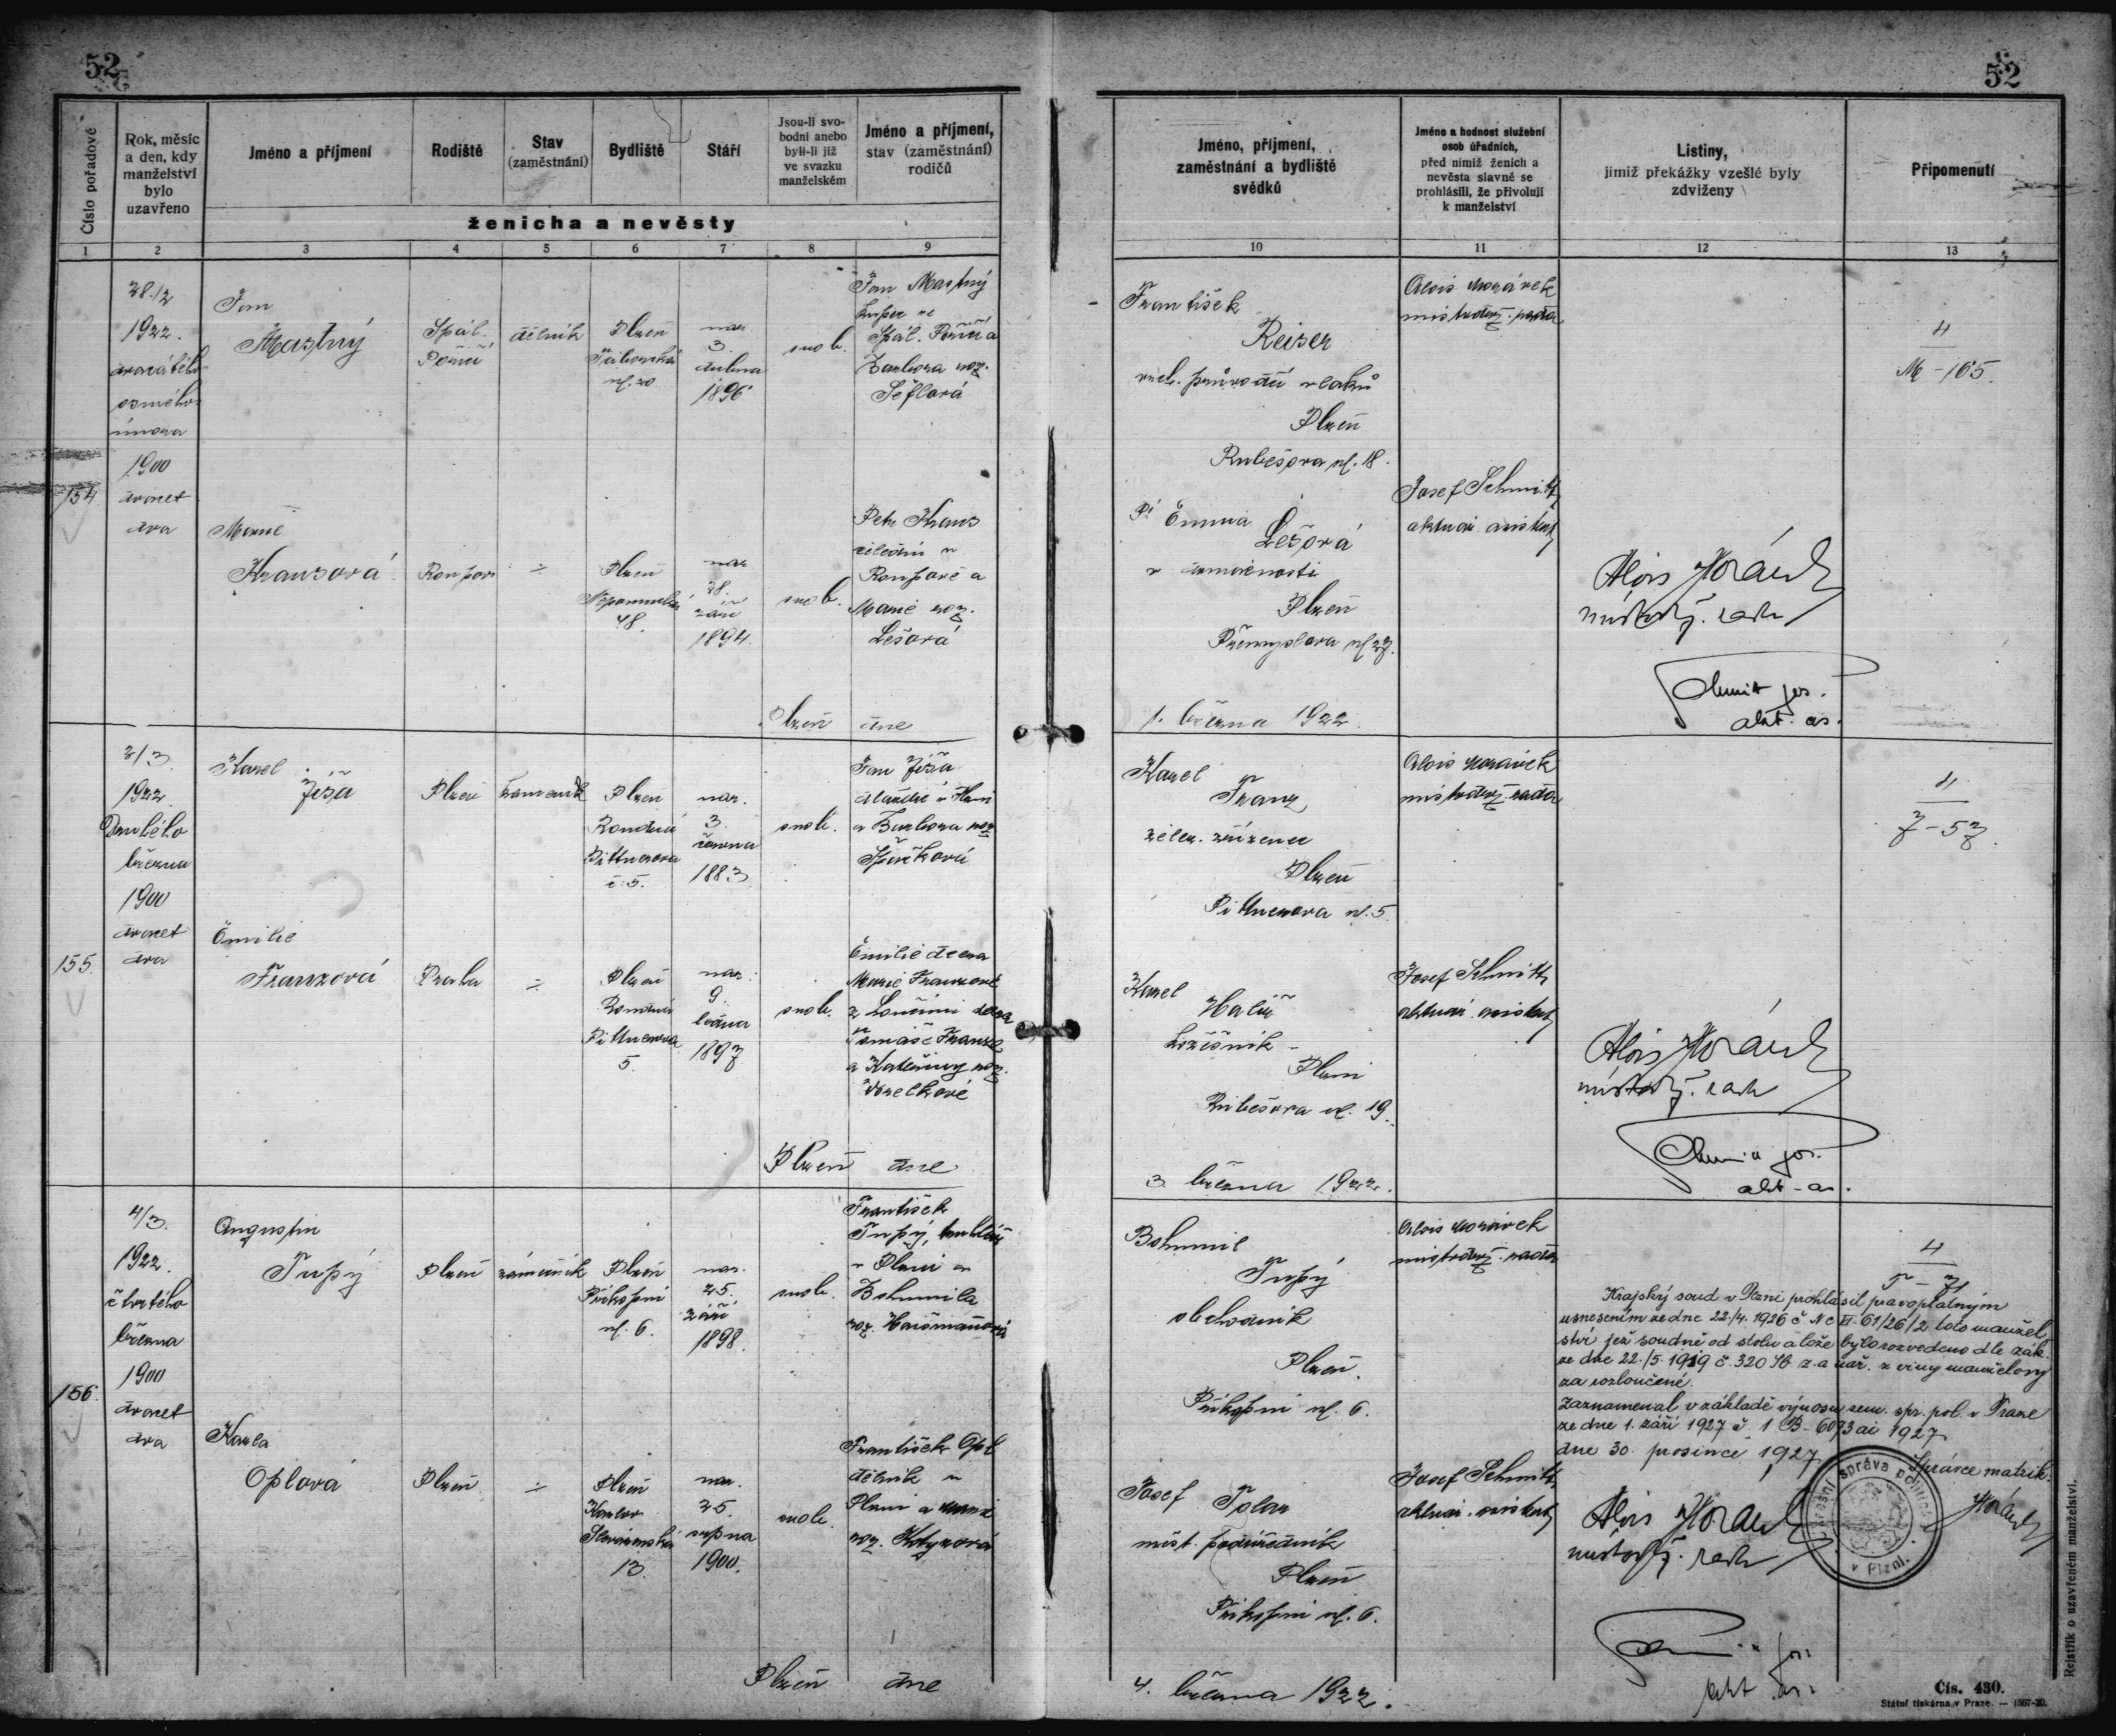 52
52
Číslo pořadové
Rok, měsíc
a den, kdy
manželství
bylo
uzavřeno
Jméno a příjmení
Rodiště
Stav
(zaměstnání)
Bydliště
Stáří
Jsou-li svo-
bodni anebo
byli-li již
ve svazku
manželském
Jméno a příjmení,
stav (zaměstnání)
rodičů
ženicha a nevěsty
1 2 3 4 5 6 7 8 9
Jméno, příjmení,
zaměstnání a bydliště
svědků
Jméno a hodnost služební
osob úředních,
před nimiž ženich a
nevěsta slavně se
prohlásili, že přivolují
k manželství
Listiny,
jimiž překážky vzešlé byly
zdviženy
Připomenutí
10 11 12 13
154
28./2
1922.
dvacátého
osmého
února
1900
dvacet
dva
Jan
Mastný
Spál.
Poříčí
dělník
Plzeň
Táborská
ul. 20
nar.
3.
dubna
1896
svob.
Jan Mastný
Spál. Poříčí a
Barbora roz.
Šeflová
Marie
Kransová
÷
Plzeň
48
nar.
28.
září
1894.
svob.
Petr Krans
a
Marie roz.
Lešová
Plzeň dne
František
Reiser
Plzeň
Rubešova ul. 18.
Emma
Lešová
v domácnosti
Plzeň
Přemyslova ul.
1. března 1922.
Alois Morávek
místodrž. rada
Josef Schmitt
aktuár. asistent
Alois Morávek
místodrž. rada
Schmitt Jos.
akt. as.
4
M - 165.
155.
2/3.
1922.
Druhého
března
1900
dvacet
dva
Karel
Ježa
Plzeň
zámečník
Plzeň
Komotná
Pittnerova
č. 5.
nar.
3.
června
1883
svob.
Jan Ježa
dlaždič v Plzni
a Barbora roz.
Emilie
Franzová
Praha
÷
Plzeň
Pittnerova
5.
nar.
9.
ledna
1897
svob.
Emilie dcera
Marie Franzové
z Loučimi dcera
Tomáše Franze
a Kateřiny roz.
Plzeň dne
Karel
Franz
želez. zřízenec
Plzeň
Pittnerova ul. 5.
Karel
Halíř
Plzni
Rubešova ul. 19.
3. března 1922.
Alois Morávek
místodrž. rada
Josef Schmitt
aktuár. asistent
Alois Morávek
místodrž. rada
Schmitt Jos.
akt - as.
4
J - 57.
156.
4/3.
1922.
čtvrtého
března
1900
dvacet
dva
Augustin
Tupý
Plzeň
zámečník
Plzeň
Příkopní
ul. 6.
nar.
25.
září
1898.
svob.
František
Tupý, truhlář
v Plzni a
Bohumila
Karla
Oplová
Plzeň
÷
Plzeň
Karlov
13.
nar.
25.
srpna
1900.
svob.
František Opl
dělník v
Plzni a Marie
Plzeň dne
Bohumil
Tupý
obchodník
Plzeň.
Příkopní ul. 6.
Josef Polan
měst. podúředník
Plzeň
Příkopní ul. 6.
4. března 1922.
Alois Morávek
místodrž. rada
Josef Schmitt
aktuár. asistent
4
T - 71
Krajský soud v Plzni prohlásil pravoplatným
usnesením ze dne 22./4. 1926 č. Nc VI-61/26/2 toto manžel
ství jež soudně od stolu a lože bylo rozvedeno dle zák.
ze dne 22./5. 1919 č. 320 Sb. z. a nař. z viny manželovy
za rozloučené.
Zaznamenal v základě výnosu zem. spr. pol. v Praze
ze dne 1. září 1927 č. 1 B - 6093 ai 1927
dne 30. prosince 1927
Správce matrik:
Morávek
správa politická
v Plzni.
Alois Morávek
místodrž. rada
Jos.
akt. as.
Rejstřík o uzavřeném manželství.
Čís. 430.
Státní tiskárna v Praze. — 1567-20.